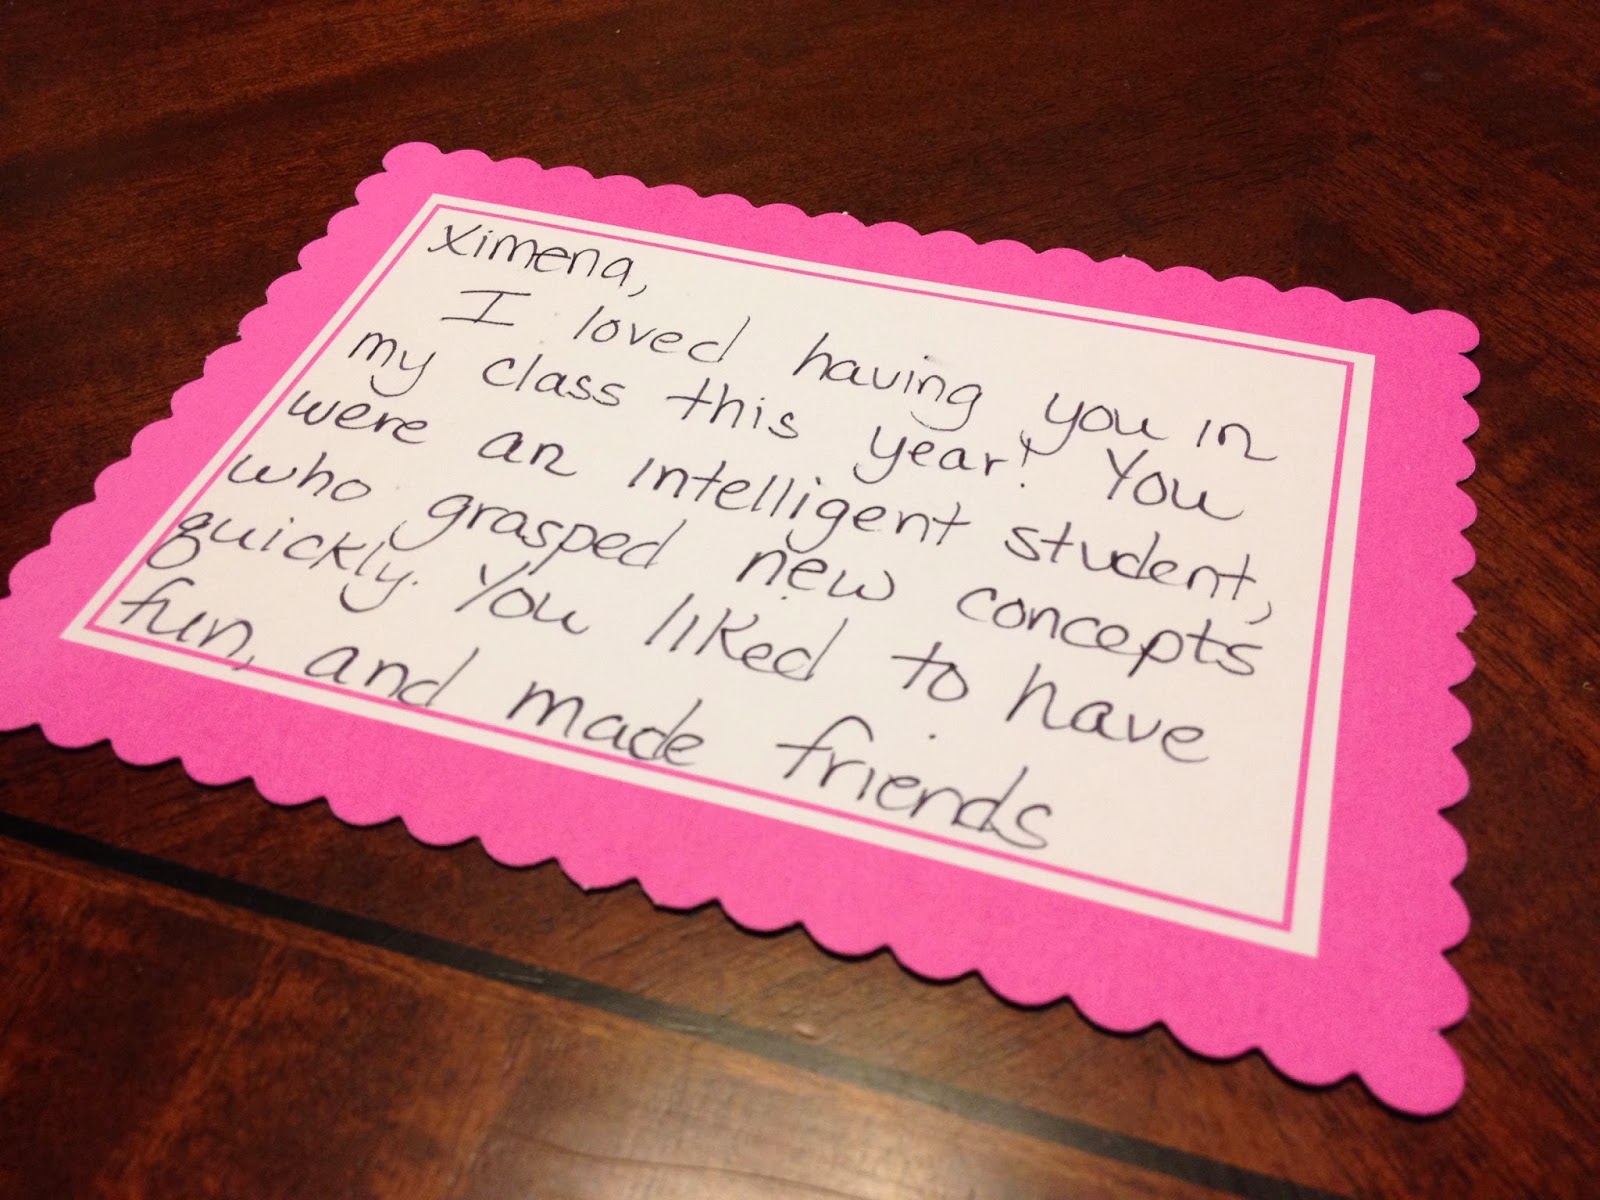 Ximena,
I loved having you in
my class this year! You
were an intelligent student,
who grasped new concepts
quickly. You liked to have
fun, and made friends